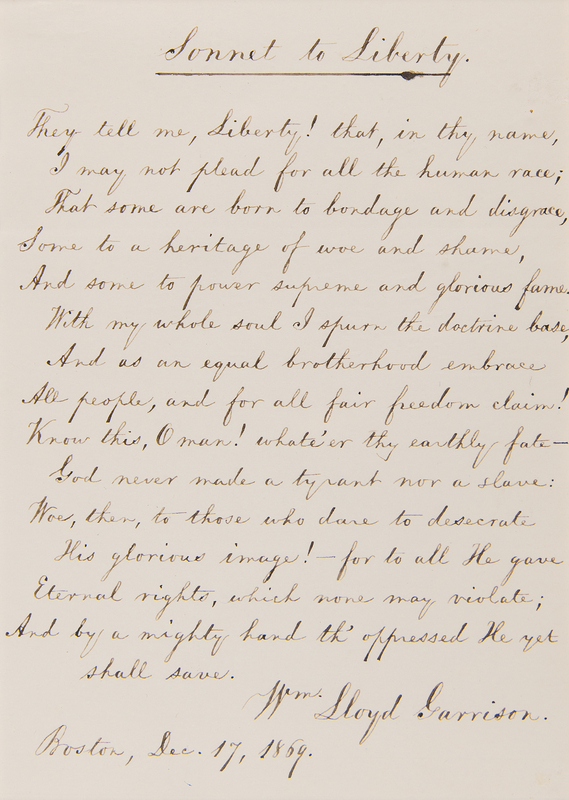 Sonnet to Liberty.
They tell me, Liberty! that, in thy name,
I may not plead for all the human race;
That some are born to bondage and disgrace,
Some to a heritage of woe and shame,
And some to power supreme and glorious fame.
With my whole soul I spurn the doctrine base,
And as an equal brotherhood embrace
All people, and for all fair freedom claim!
Know this, O man! whate'er thy earthly fate—
God never made a tyrant nor a slave:
Woe, then, to those who dare to desecrate
His glorious image!—for to all He gave
Eternal rights, which none may violate;
And by a mighty hand th' oppressed He yet
shall save.
Wm. Lloyd Garrison.
Boston, Dec. 17, 1869.